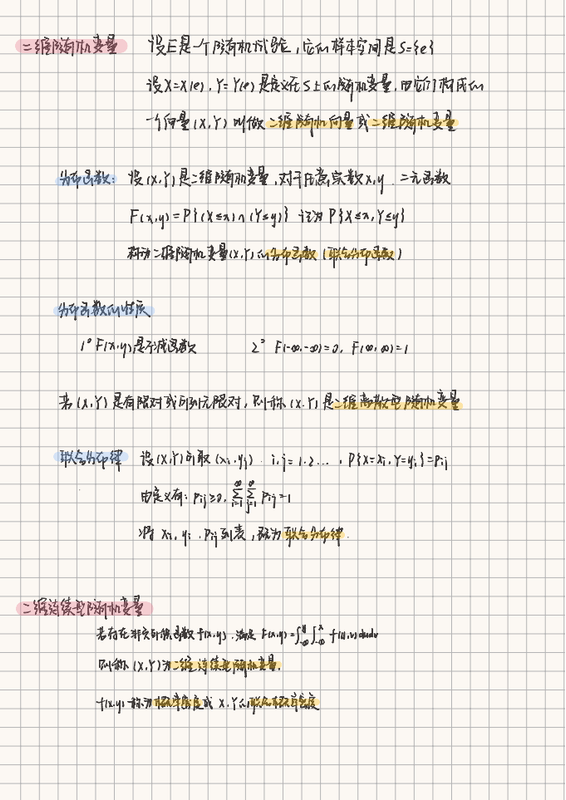 二维随机变量 设E是一个随机试验,它的样本空间是S={e}
设X=X(e),Y=Y(e)是定义在S上的随机变量,由它们构成的
一个向量(X,Y)叫做二维随机向量或二维随机变量
分布函数: 设(X,Y)是二维随机变量,对于任意实数x,y 二元函数
F(x,y)=P{(X≤x)∩(Y≤y)} 记为 P{X≤x,Y≤y}
称为二维随机变量(X,Y)的分布函数(联合分布函数)
分布函数的性质
1° F(x,y)是不减函数 2° F(-∞,-∞)=0, F(∞,∞)=1
若(X,Y)是有限对或可列无限对,则称(X,Y)是二维离散型随机变量
联合分布律 设(X,Y)可取(xi,yj), i,j=1,2..., P{X=xi,Y=yj}=Pij
由定义有: Pij≥0, ∑∞i=1 ∑∞j=1 Pij=1
将 xi, yj, Pij列表,称为联合分布律.
二维连续型随机变量
若存在非负可积函数f(x,y),满足F(x,y)=∫y-∞∫x-∞ f(u,v)dudv
则称(X,Y)为二维连续型随机变量.
f(x,y)称为概率密度或X,Y的联合概率密度